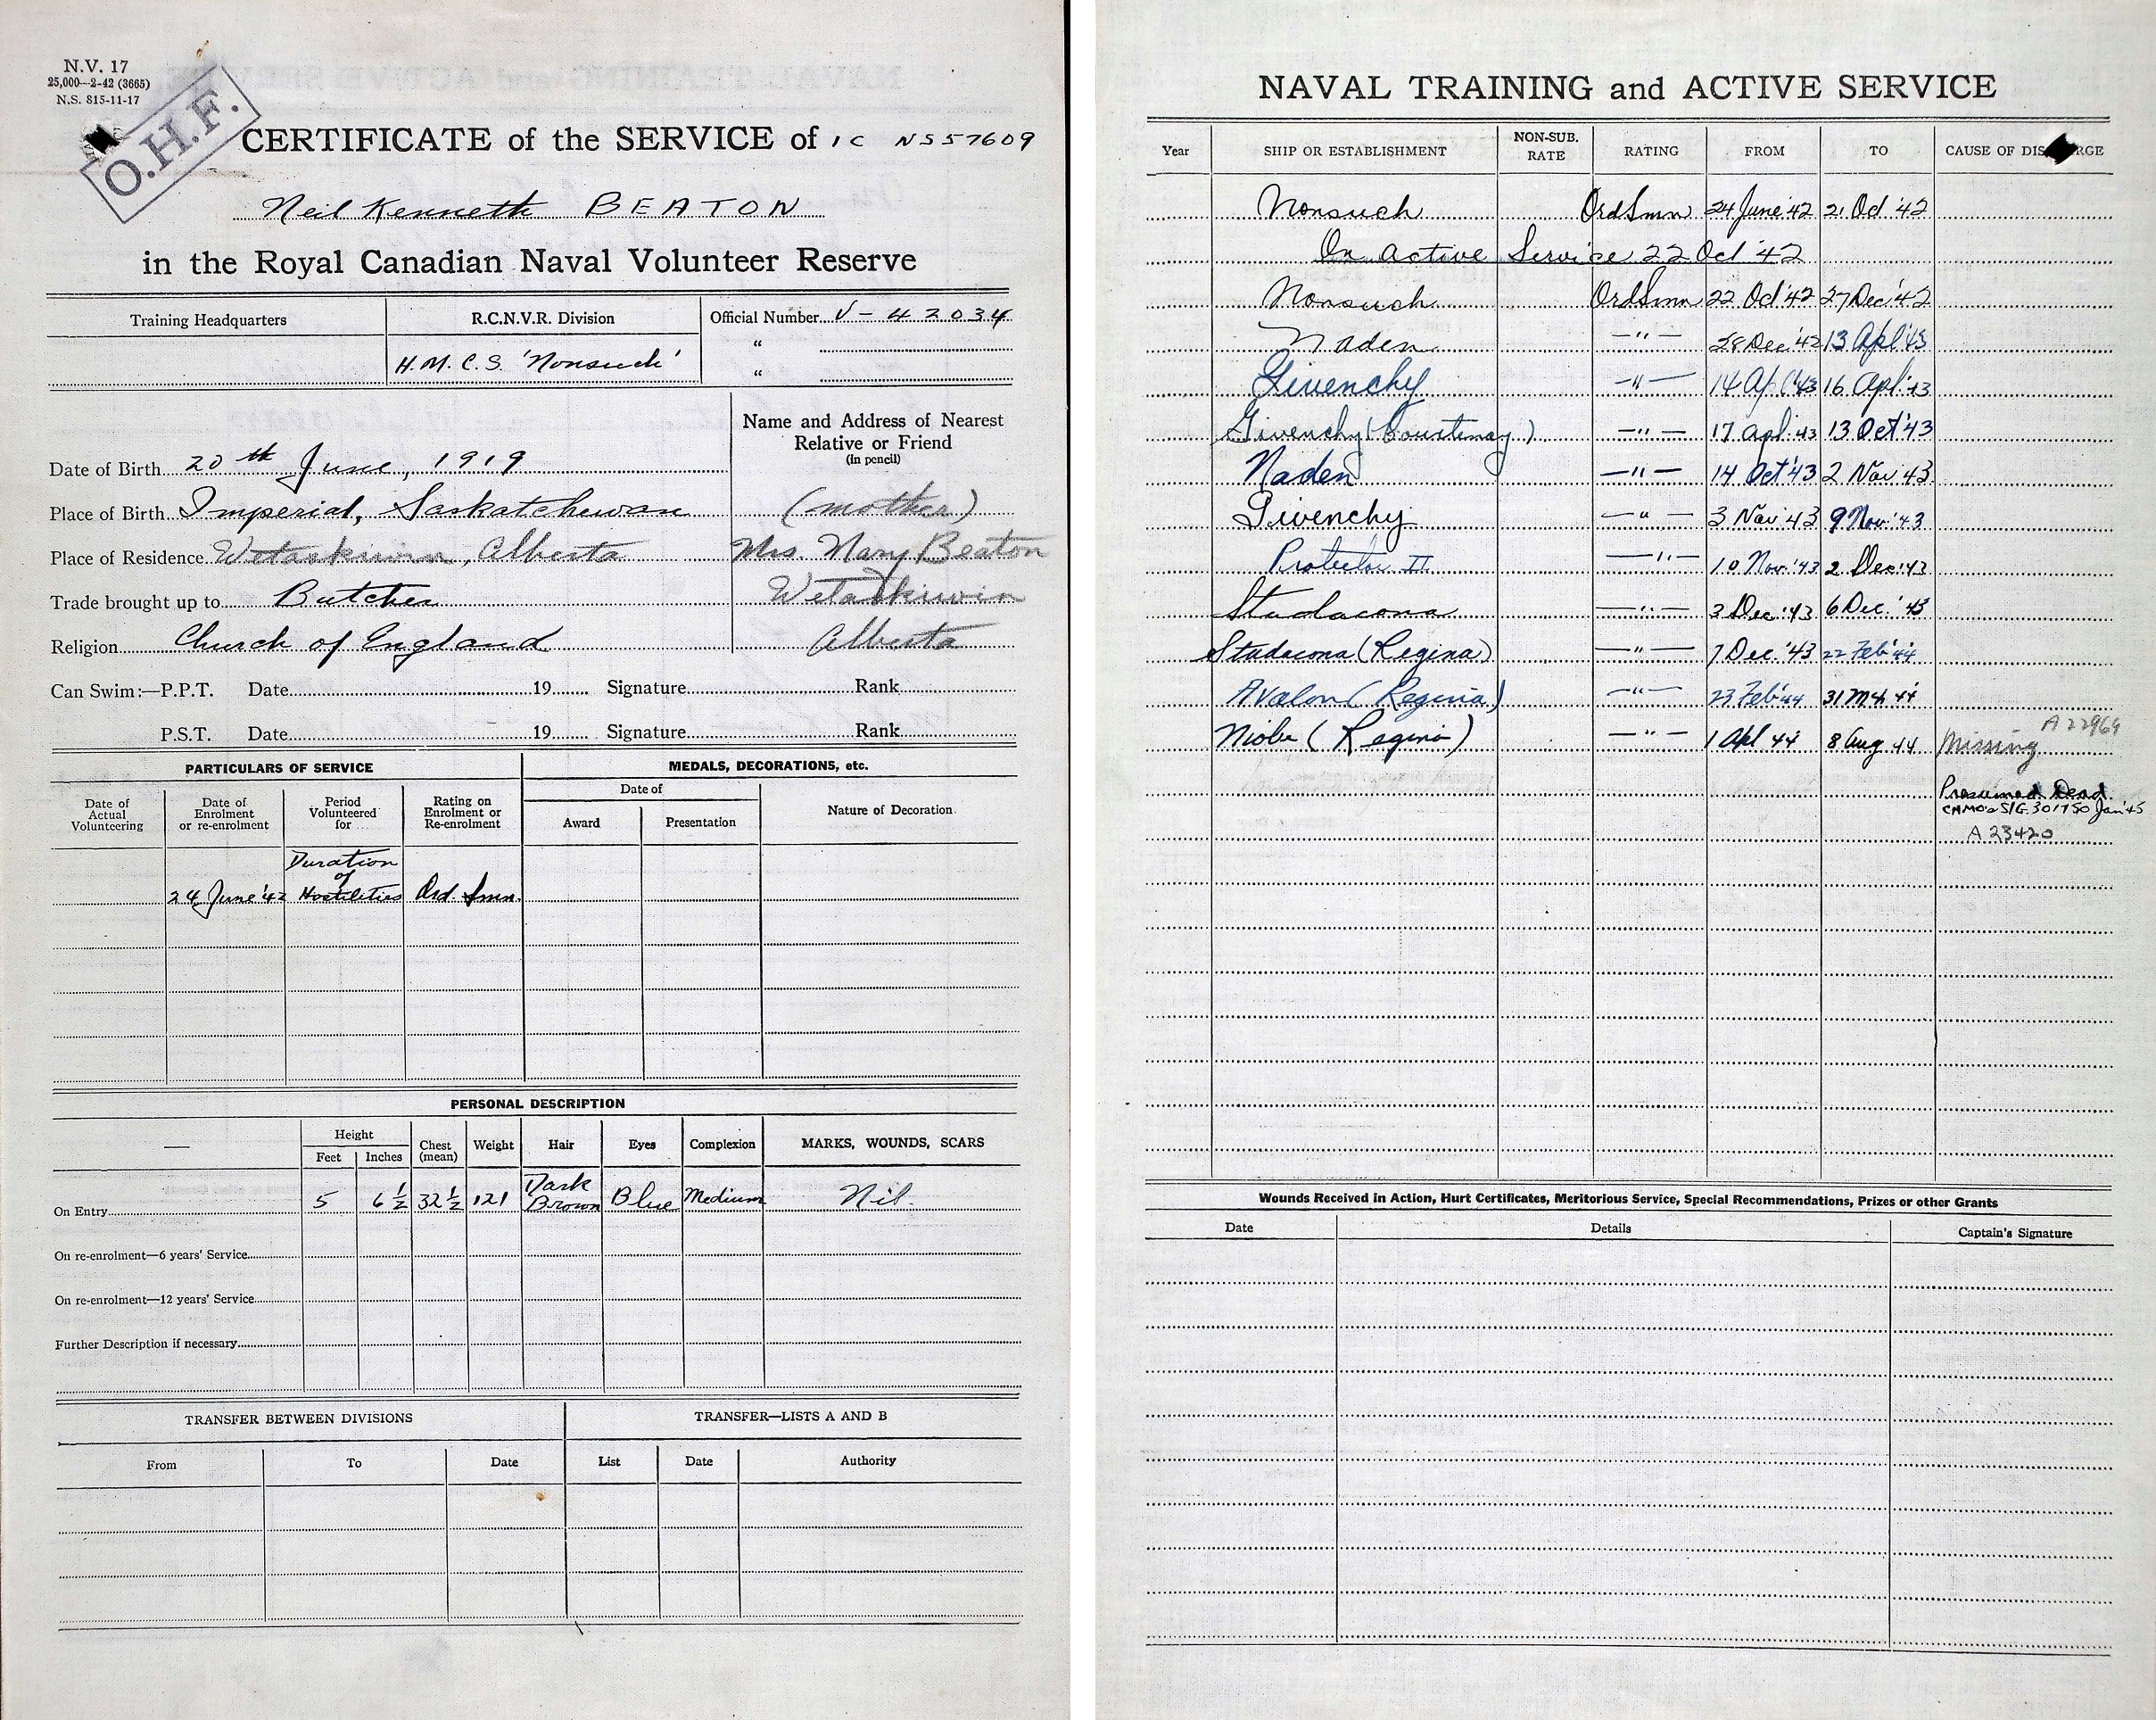 N.V. 17
25,000—2-42 (3665)
N.S. 815-11-17
O.H.F.
CERTIFICATE of the SERVICE of 1C NS57609
Neil Kenneth BEATON
in the Royal Canadian Naval Volunteer Reserve
Training Headquarters R.C.N.V.R. Division Official Number V-42034
H.M.C.S 'Nonsuch' "
"
Name and Address of Nearest
Relative or Friend
(in pencil)
Date of Birth 20th June, 1919
Place of Birth Imperial, Saskatchewan (mother)
Place of Residence Wetaskiwin, Alberta Mrs. Mary Beaton
Trade brought up to Butcher Wetaskiwin
Religion Church of England Alberta
Can Swim:—P.P.T. Date 19 Signature Rank
P.S.T. Date 19 Signature Rank
PARTICULARS OF SERVICE MEDALS, DECORATIONS, etc.
Date of Actual Volunteering Date of Enrolment or re-enrolment Period Volunteered for Rating on Enrolment or Re-enrolment Date of Award Presentation Nature of Decoration
Duration
of
24 June '42 Hostilities Ord. Smn.
PERSONAL DESCRIPTION
— Height Feet Inches Chest (mean) Weight Hair Eyes Complexion MARKS, WOUNDS, SCARS
On Entry 5 6½ 32½ 121 Dark Brown Blue Medium Nil.
On re-enrolment—6 years' Service
On re-enrolment—12 years' Service
Further Description if necessary
TRANSFER BETWEEN DIVISIONS TRANSFER—LISTS A AND B
From To Date List Date Authority
NAVAL TRAINING and ACTIVE SERVICE
Year SHIP OR ESTABLISHMENT NON-SUB. RATE RATING FROM TO CAUSE OF DIS RGE
Nonsuch OrdSmn 24 June '42 21 Oct '42
On Active Service 22 Oct '42
Nonsuch OrdSmn 22 Oct '42 27 Dec '42
Naden —"— 28 Dec '42 13 Apl '43
Givenchy —"— 14 Apl '43 16 Apl '43
Givenchy (Courtenay) —"— 17 Apl '43 13 Oct '43
Naden —"— 14 Oct '43 2 Nov '43
Givenchy —"— 3 Nov '43 9 Nov '43
Protector II —"— 10 Nov '43 2 Dec '43
Stadacona —"— 3 Dec '43 6 Dec. '43
Stadacona (Regina) —"— 7 Dec. '43 22 Feb '44
Avalon (Regina) —"— 23 Feb '44 31 Mch 44
A 22969
Niobe (Regina) —"— 1 Apl 44 8 Aug 44 Missing
Presumed Dead.
CNMO's SIG. 301750 Jan '45
A 23420
Wounds Received in Action, Hurt Certificates, Meritorious Service, Special Recommendations, Prizes or other Grants
Date Details Captain's Signature